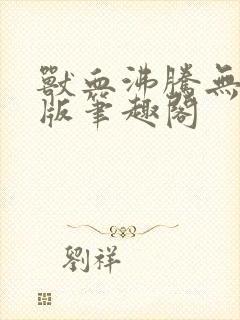 獸血沸騰無
版筆趣閣
劉祥